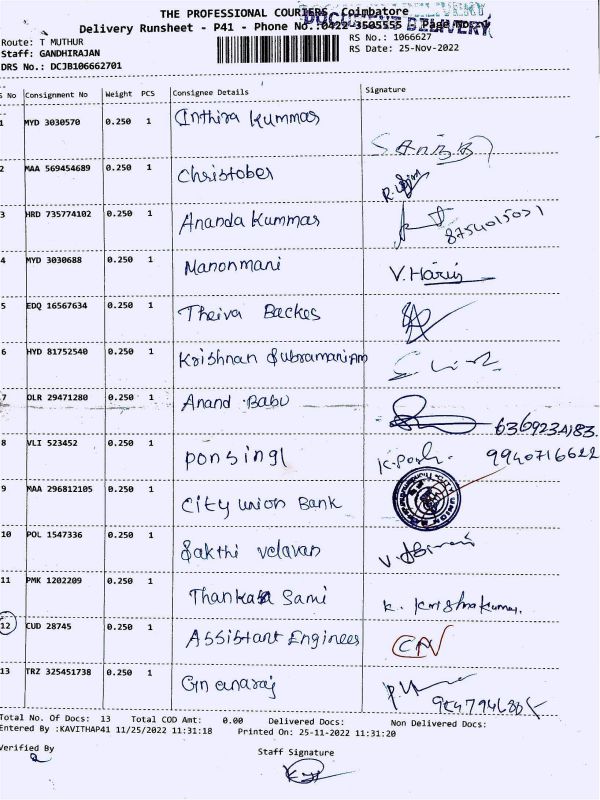 THE PROFESSIONAL COURIERS Coimbatore
Delivery Runsheet - P41 - Phone No.:0422-3505555
DOCUMENT DELIVERY
Route: T MUTHUR
RS No.: 1066627
Staff: GANDHIRAJAN
RS Date: 25-Nov-2022
DRS No.: DCJB106662701
S No Consignment No Weight PCS Consignee Details Signature
1 MYD 3030570 0.250 1 Inthira Kummar
2 MAA 569454689 0.250 1 Christober
3 HRD 735774102 0.250 1 Ananda Kummar
8754015031
4 MYD 3030688 0.250 1 Manonmani V. Haris
5 EDQ 16567634 0.250 1 Theiva Backes
6 HYD 81752540 0.250 1 Krishnan Subramaniam
7 DLR 29471280 0.250 1 Anand Babu
6369234183
8 VLI 523452 0.250 1 Ponsingl
9940716622
9 MAA 296812105 0.250 1 City union Bank
10 POL 1547336 0.250 1 Sakthi velavan
11 PMK 1202209 0.250 1 Thankara Sami K. Krishnakumar
12 CUD 28745 0.250 1 Assistant Engineer
13 TRZ 325451738 0.250 1
Total No. Of Docs: 13 Total COD Amt: 0.00 Delivered Docs: Non Delivered Docs:
Entered By :KAVITHAP41 11/25/2022 11:31:18 Printed On: 25-11-2022 11:31:20
Verified By
Staff Signature